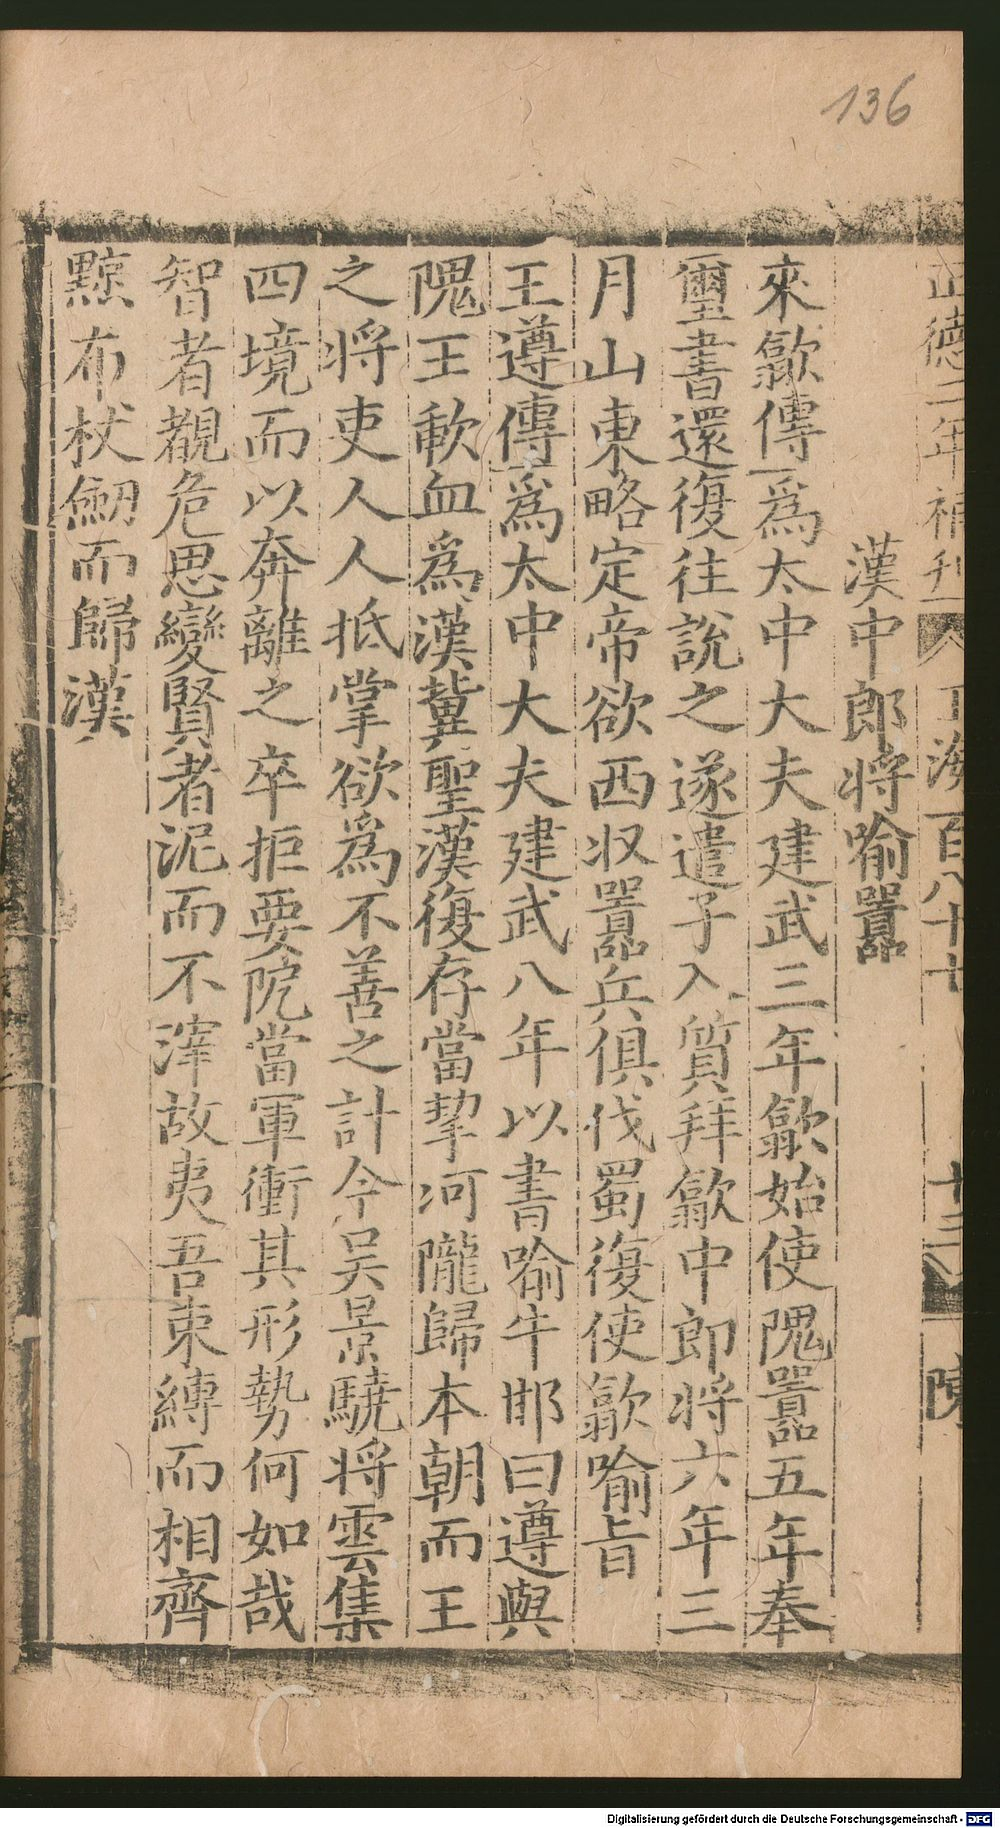 136
正德二年補刊 玉海一百八十七 十三 陳
漢中郎將喻囂
來歙傳爲太中大夫建武三年歙始使隗囂五年奉
璽書還復往說之遂遣子入質拜歙中郎將六年三
月山東略定帝欲西収囂兵俱伐蜀復使歙喻旨
王遵傳爲太中大夫建武八年以書喻牛邯曰遵與
隗王歃血爲漢冀聖漢復存當挈河隴歸本朝而王
之將吏人人抵掌欲爲不善之計今吴景驍將雲集
四境而以奔離之卒拒要阸當軍衝其形勢何如哉
智者覩危思變賢者泥而不滓故夷吾束縛而相齊
黥布杖劒而歸漢
Digitalisierung gefördert durch die Deutsche Forschungsgemeinschaft - DFG